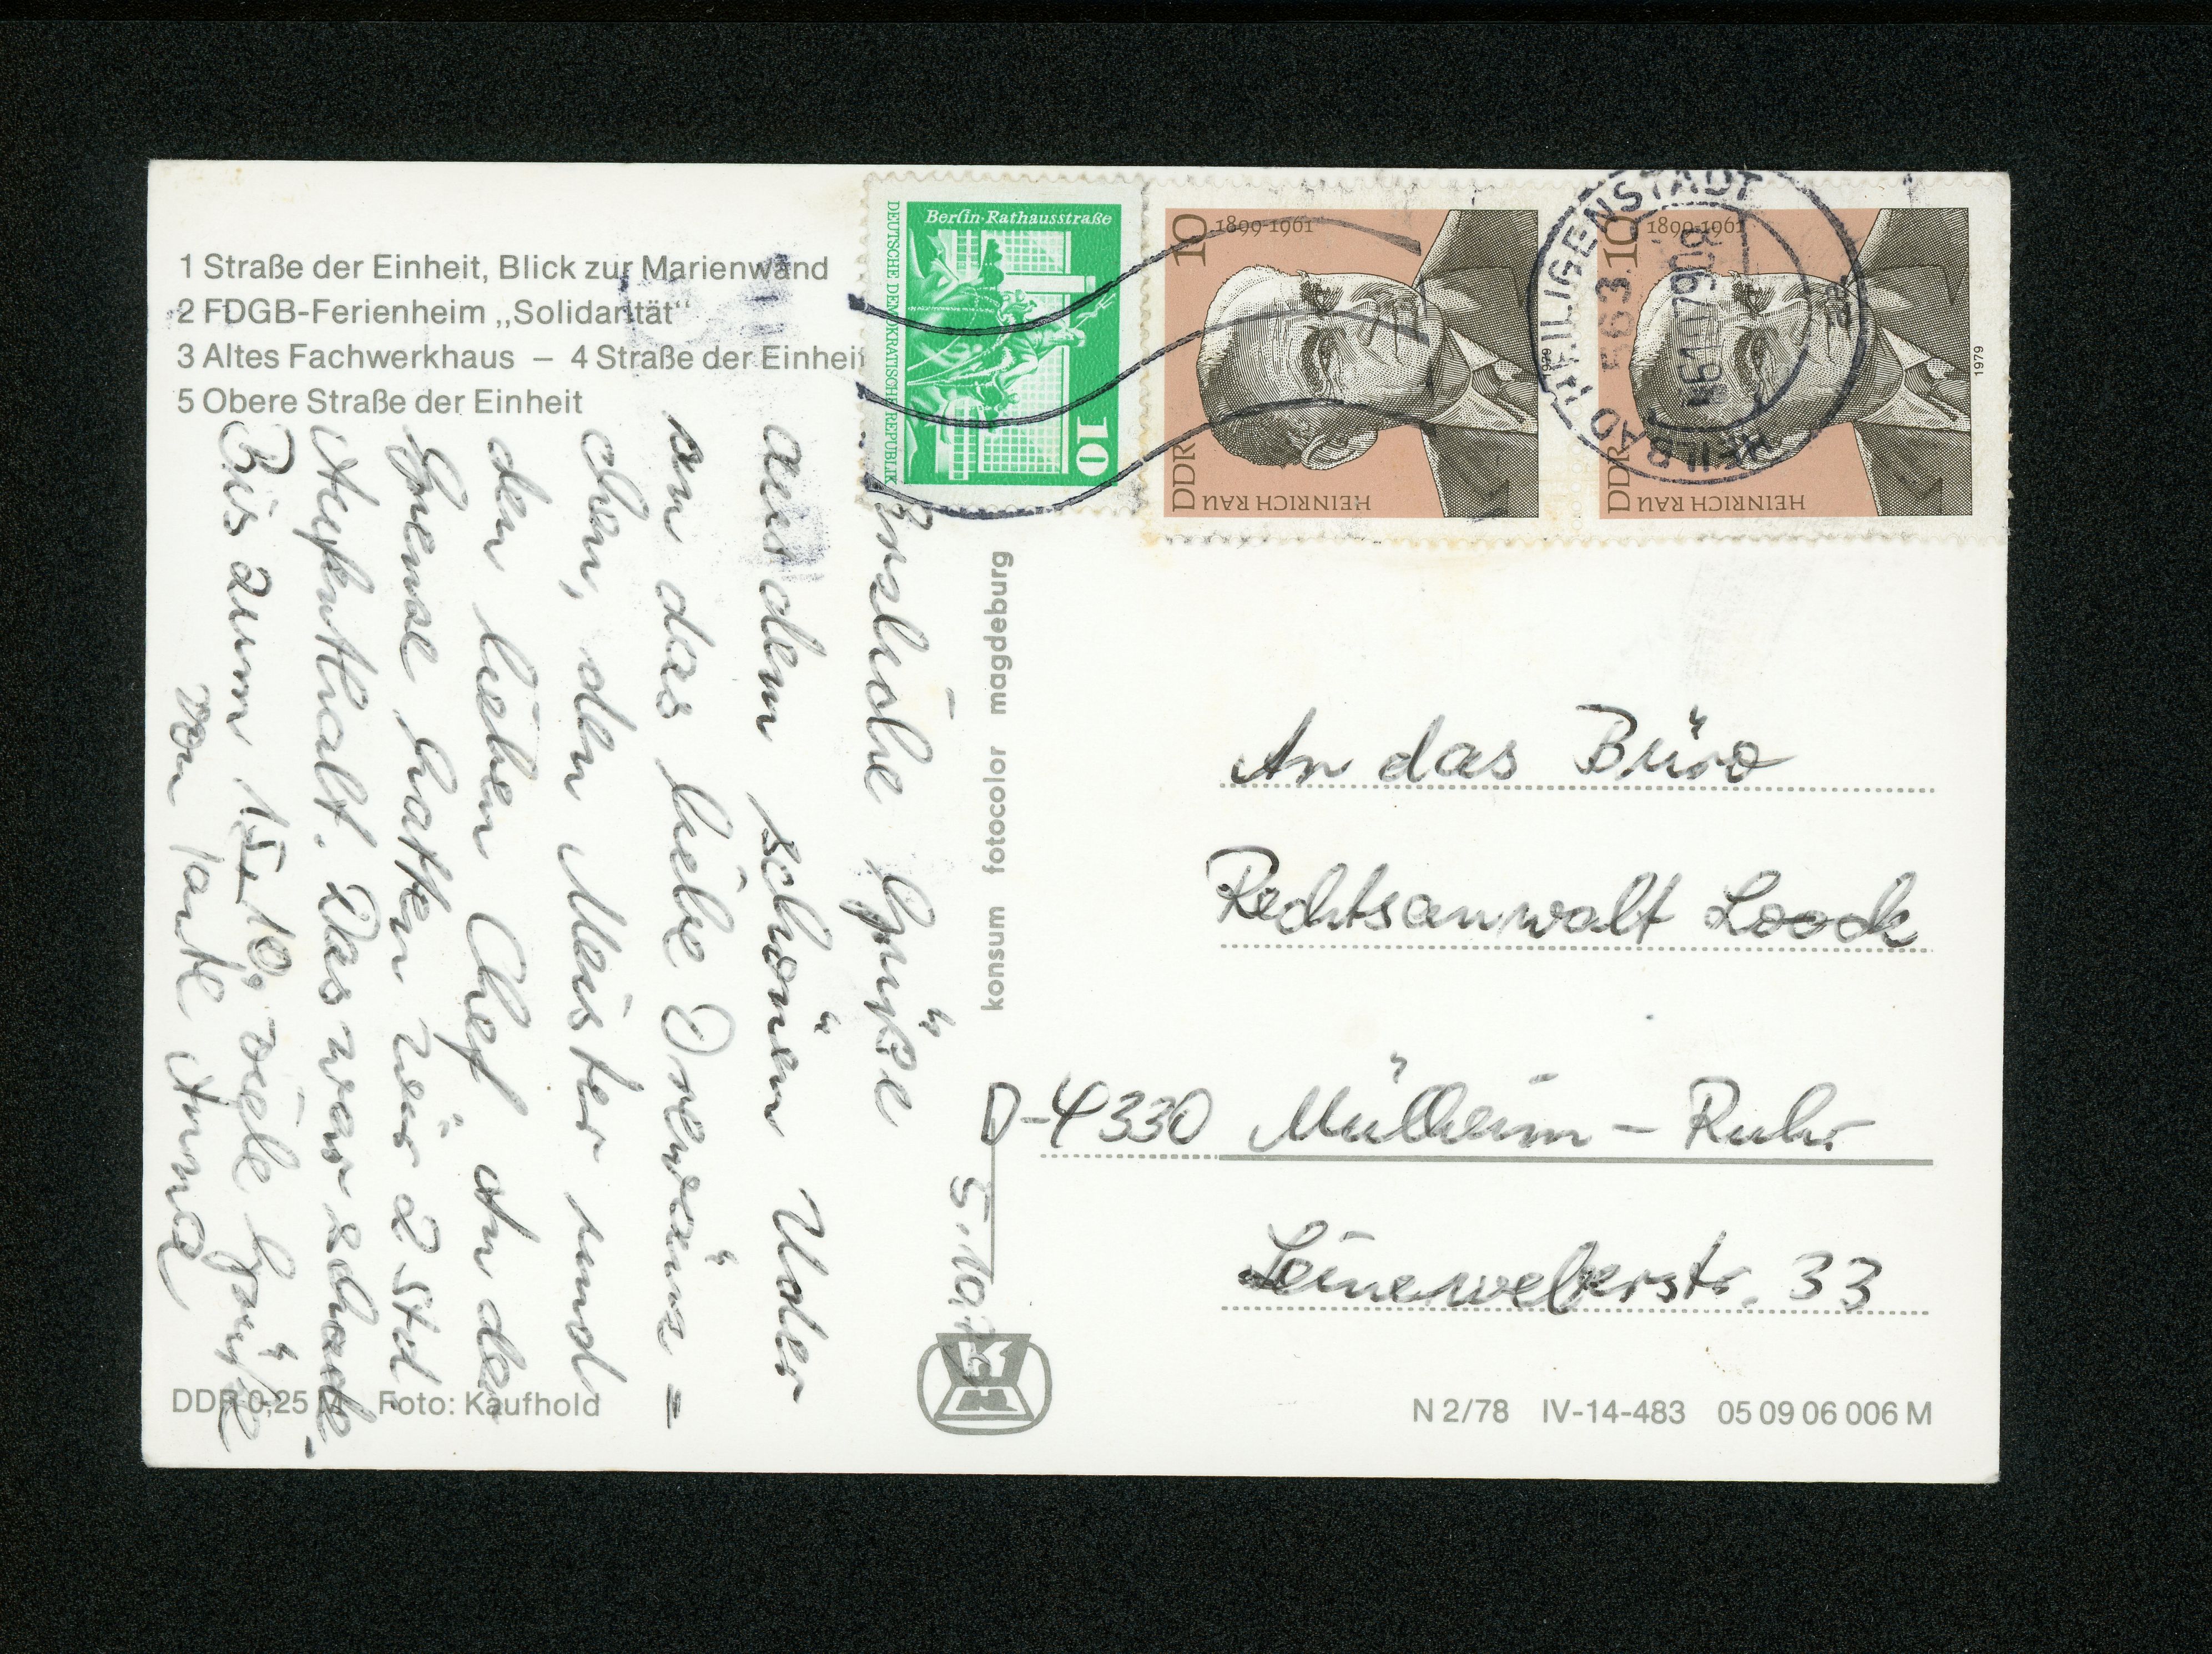 1 Straße der Einheit, Blick zur Marienwand
2 FDGB-Ferienheim „Solidarität“
3 Altes Fachwerkhaus – 4 Straße der Einheit
5 Obere Straße der Einheit
Berlin-Rathausstraße
DEUTSCHE DEMOKRATISCHE REPUBLIK
10
10
1899-1961
DDR
HEINRICH RAU
1979
10
1899-1961
DDR
HEINRICH RAU
1979
HEILBAD HEILIGENSTADT
563
-6.10.79
5.10.
Grüße
aus dem schönen Uder
an das liebe
chen, den Meister und
den lieben Chef An der
Grenze hatten wir 2 Std
Aufenthalt. Das war schade.
Bis zum 15. 10. viele Grüße
von Tante Anna
konsum fotocolor magdeburg
An das Büro
Rechtsanwalt Loock
D-4330 Mülheim – Ruhr
Leineweberstr. 33
DDR 0,25 M Foto: Kaufhold
N 2/78 IV-14-483 05 09 06 006 M